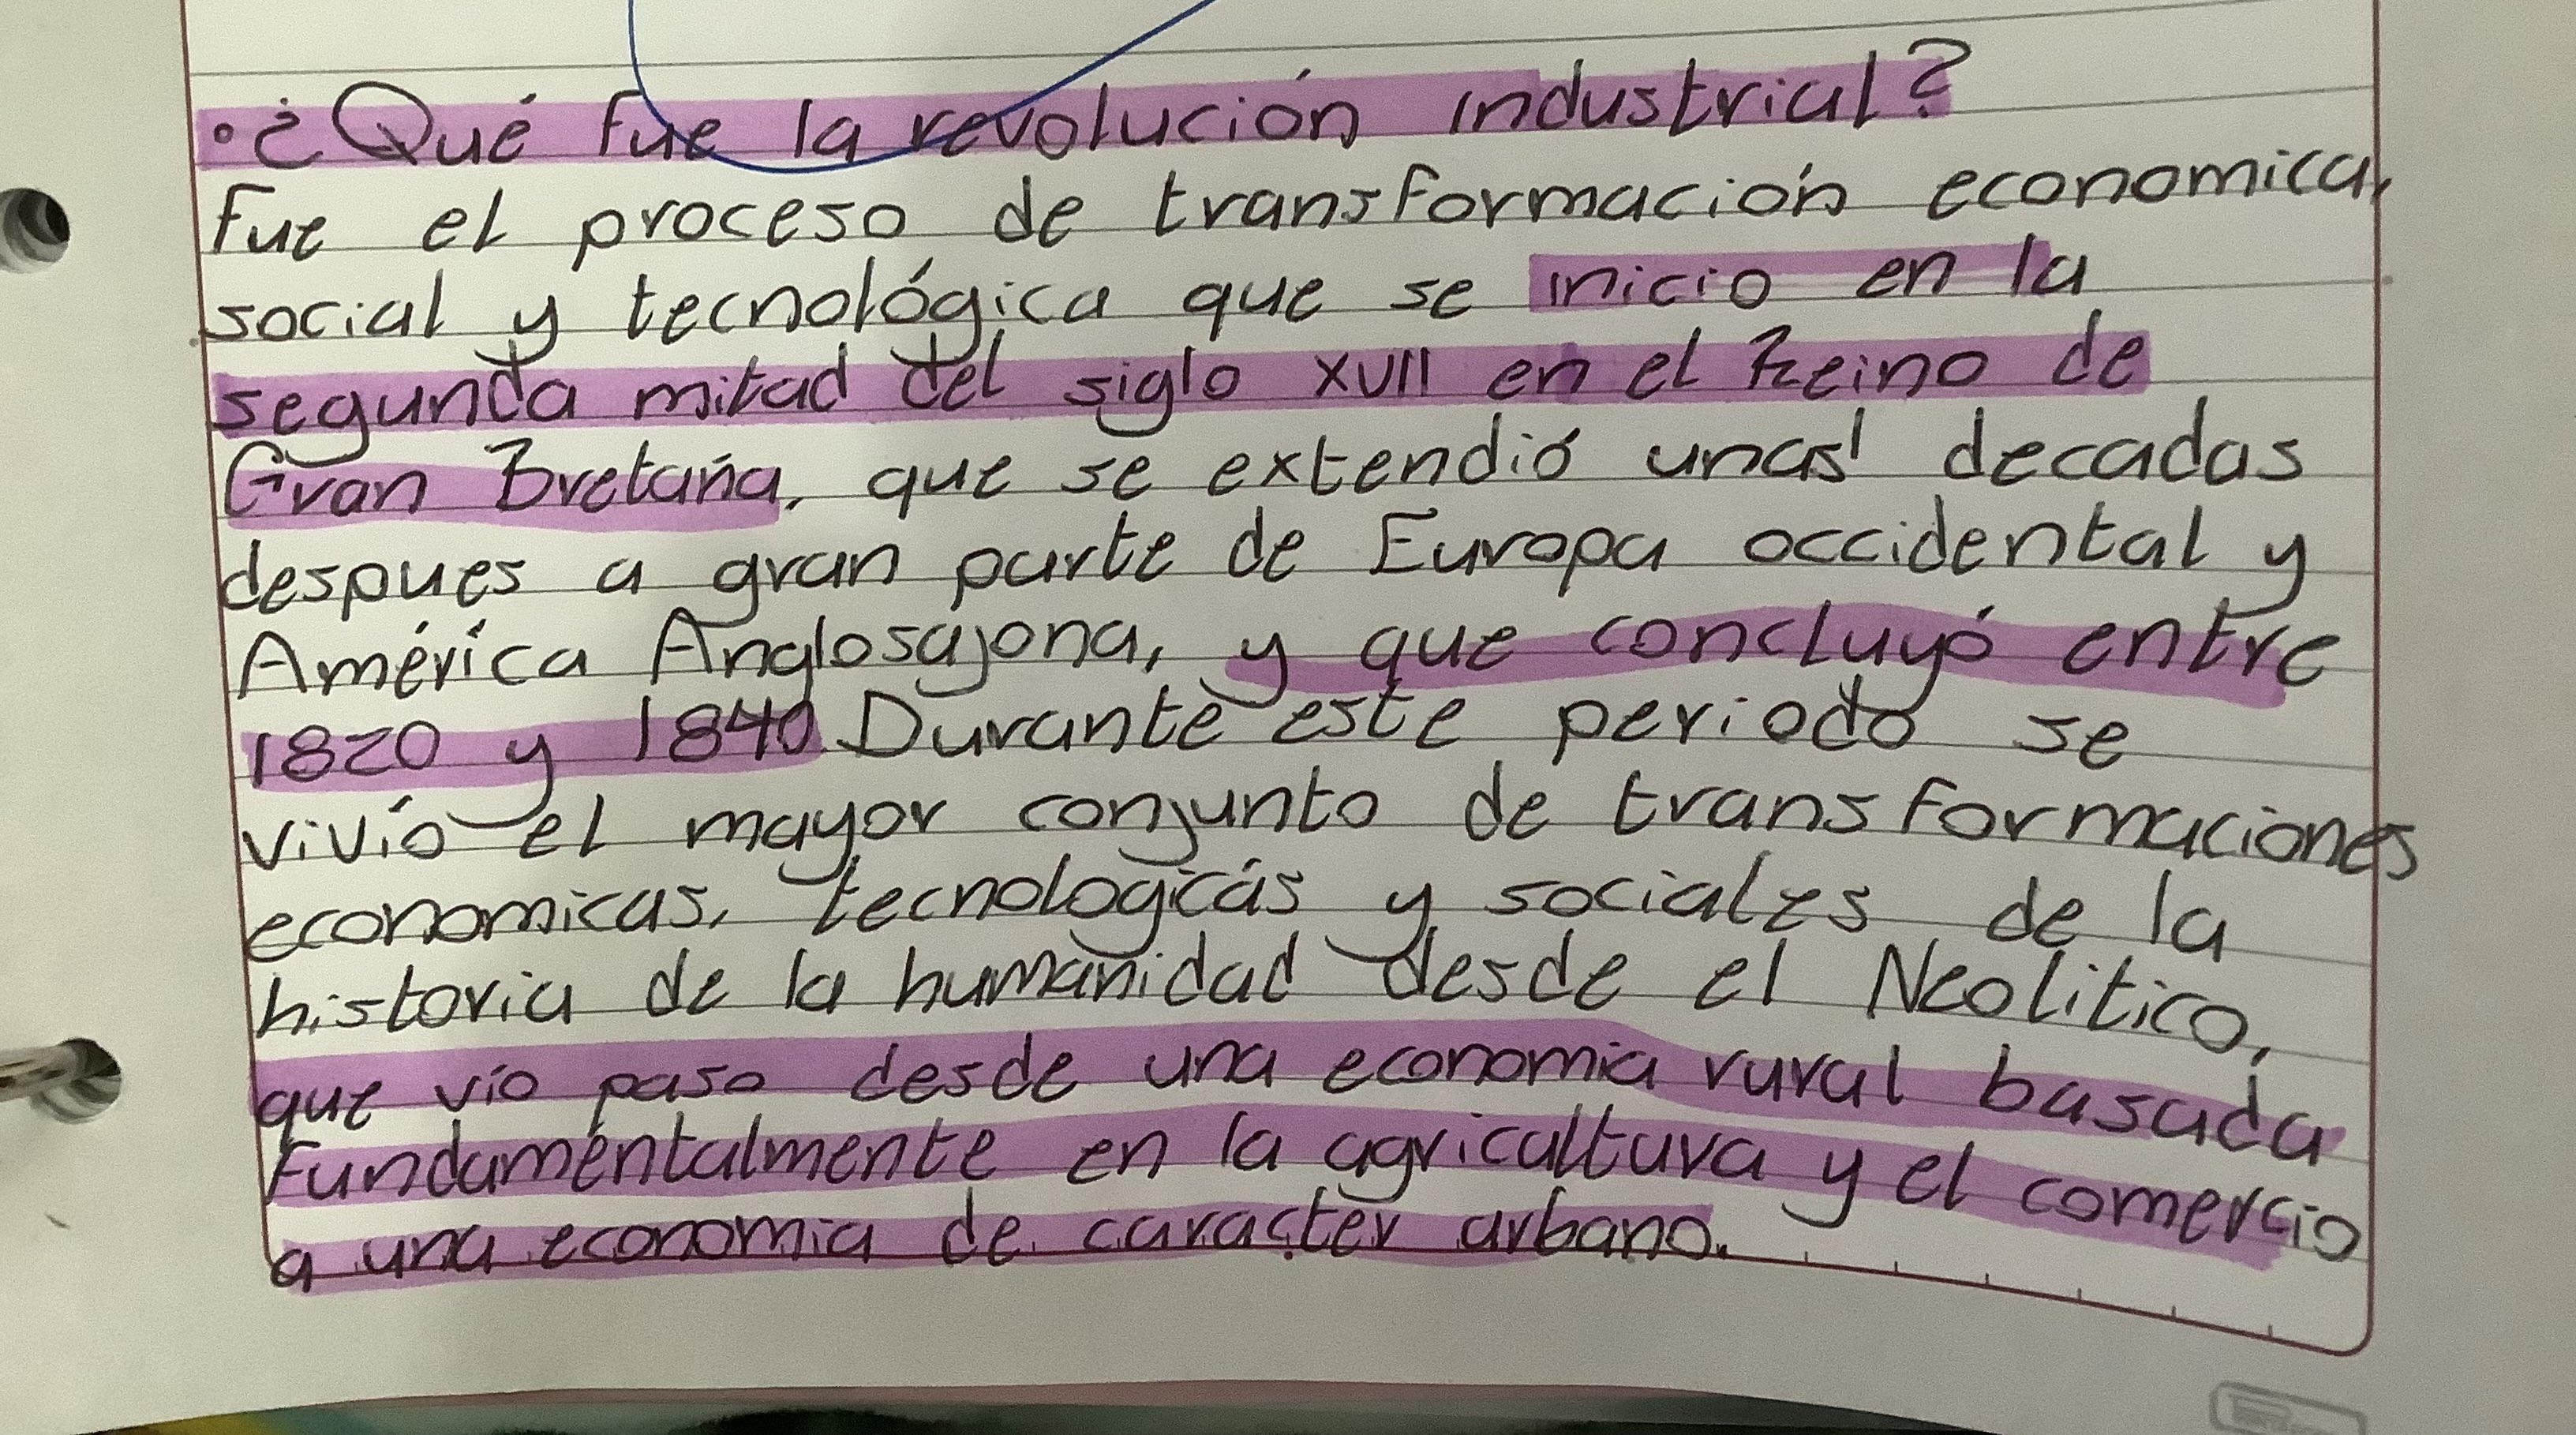 •¿Qué fue la revolución industrial?
Fue el proceso de transformación economica,
social y tecnológica que se inicio en la
segunda mitad del siglo XVII en el Reino de
Gran Bretaña, que se extendió unas decadas
despues a gran parte de Europa occidental y
América Anglosajona, y que concluyó entre
1820 y 1840. Durante este periodo se
vivío el mayor conjunto de transformaciones
economicas, tecnologicas y sociales de la
historia de la humanidad desde el Neolitico,
que vío paso desde una economia rural basada
Fundamentalmente en la agricultura y el comercio
a una economia de caracter urbano.